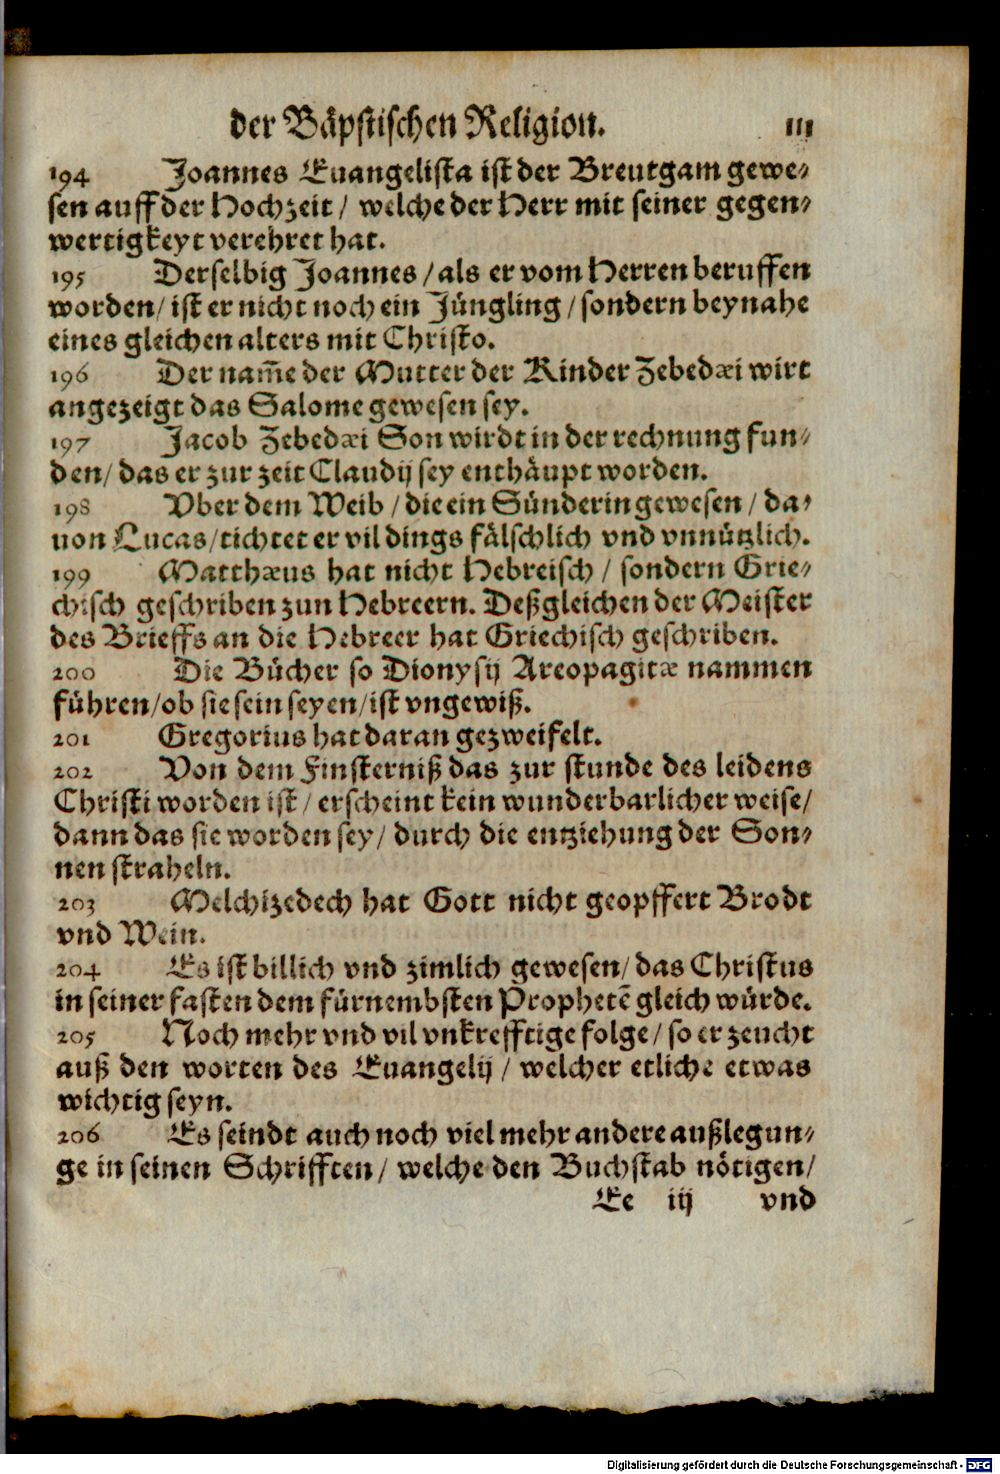 der Bäpstischen Religion. 111
194 Joannes Euangelista ist der Breutgam gewe-
sen auff der Hochzeit / welche der Herr mit seiner gegen-
wertigkeyt verehret hat.
195 Derselbig Joannes / als er vom Herren beruffen
worden / ist er nicht noch ein Jüngling / sondern beynahe
eines gleichen alters mit Christo.
196 Der nam̄e der Mutter der Kinder Zebedæi wirt
angezeigt das Salome gewesen sey.
197 Jacob Zebedæi Son wirdt in der rechnung fun-
den / das er zur zeit Claudij sey enthäupt worden.
198 Vber dem Weib / die ein Sünderin gewesen / da-
uon Lucas / tichtet er vil dings fälschlich vnd vnnützlich.
199 Matthæus hat nicht Hebreisch / sondern Grie-
chisch geschriben zun Hebreern. Deßgleichen der Meister
des Brieffs an die Hebreer hat Griechisch geschriben.
200 Die Bücher so Dionysij Areopagitæ nammen
führen / ob sie sein seyen / ist vngewiß.
201 Gregorius hat daran gezweifelt.
202 Von dem Finsterniß das zur stunde des leidens
Christi worden ist / erscheint kein wunderbarlicher weise /
dann das sie worden sey / durch die entziehung der Son-
nen straheln.
203 Melchizedech hat Gott nicht geopffert Brodt
vnd Wein.
204 Es ist billich vnd zimlich gewesen / das Christus
in seiner fasten dem fürnembsten Prophetē gleich würde.
205 Noch mehr vnd vil vnkrefftige folge / so er zeucht
auß den worten des Euangelij / welcher etliche etwas
wichtig seyn.
206 Es seindt auch noch viel mehr andere außlegun-
ge in seinen Schrifften / welche den Buchstab nötigen /
Ee iij vnd
Digitalisierung gefördert durch die Deutsche Forschungsgemeinschaft - DFG